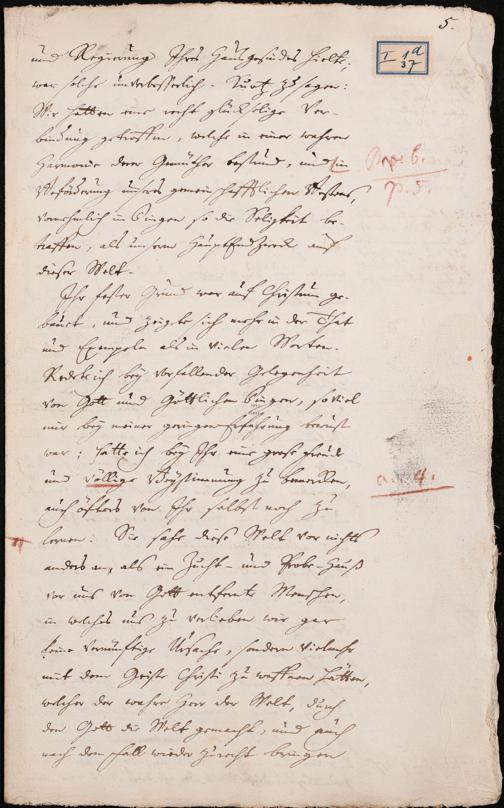 5.
I 1a/37
und Regierung Ihres Hausgesindes hielte,
war solche unverbesserlich. Kurtz zu sagen:
Wir hatten eine recht glückselige Ver-
bindung getroffen, welche in einer wahren
Harmonie derer Gemüther bestund, und in
Beförderung unsers gemeinschafftlichen Bestens,
vornehmlich in Dingen so die Seligkeit be-
treffen, als unsern Haupt-Endzweck auf
dieser Welt.
p. 5.
Ihr fester Grund war auf Christum ge-
bauet, und zeigte sich mehr in der That
und Exempeln als in vielen Worten.
Redete ich bey vorfallender Gelegenheit
von Gott und Göttlichen Dingen, so viel
mir bey meiner geringen Erfahrung bewust
war; hatte ich bey Ihr eine große Freude
und völlige Beystimmung zu bemercken,
auch öfters von Ihr selbst noch zu
lernen. Sie sahe diese Welt vor nichts
anders an, als ein Zucht- und Probe-Hauß
vor uns von Gott entfernte Menschen,
in welches uns zu verlieben wir gar
keine vernünftige Ursache, sondern vielmehr
mit dem Geiste Christi zu waffnen hätten,
welcher der wahre Herr der Welt, durch
den Gott die Welt gemacht, und auch
nach dem Fall wieder zurecht bringen